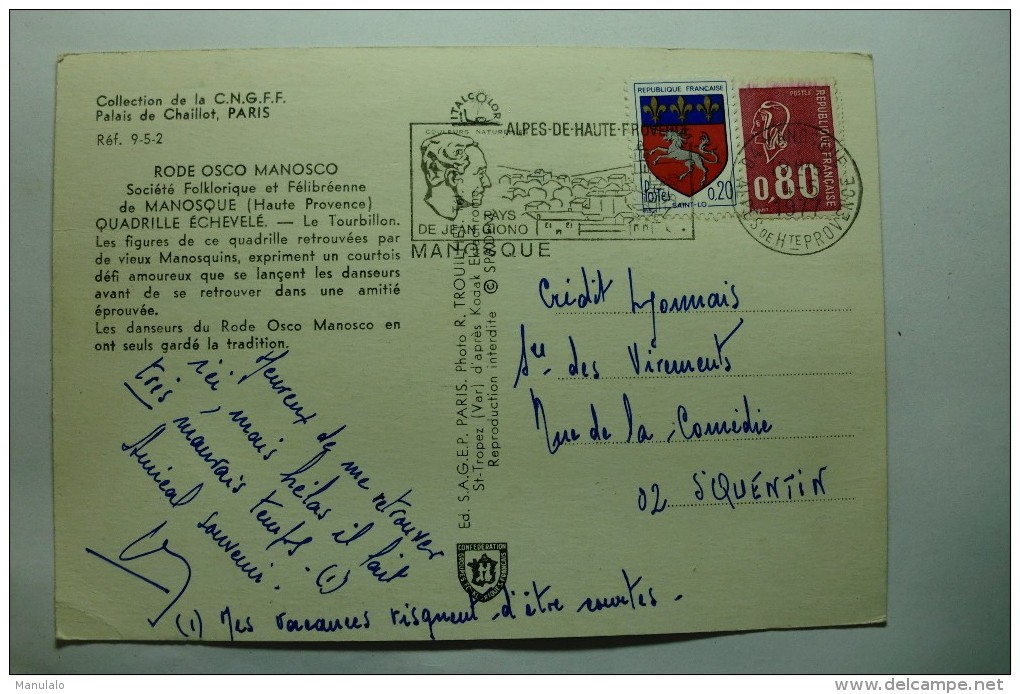 Collection de la C.N.G.F.F.
Palais de Chaillot, PARIS
Réf. 9-5-2
RODE OSCO MANOSCO
Société Folklorique et Félibréenne
de MANOSQUE (Haute Provence)
QUADRILLE ÉCHEVELÉ. — Le Tourbillon.
Les figures de ce quadrille retrouvées par
de vieux Manosquins, expriment un courtois
défi amoureux que se lançent les danseurs
avant de se retrouver dans une amitié
éprouvée.
Les danseurs du Rode Osco Manosco en
ont seuls gardé la tradition.
Heureux de me retrouver
ici, mais hélas il fait
très mauvais temps. (1)
Amical souvenir.
(1) Mes vacances risquent d'être courtes.
Ed. S.A.G.E.P. PARIS. Photo R. TROUILHET
St-Tropez (Var) d'après Kodak Ektachrome
Reproduction interdite © SPADEM
CONFÉDÉRATION
ITALCOLOR
COULEURS NATURELLES
ALPES-DE-HAUTE-PROVENCE
PAYS
DE JEAN GIONO
MANOSQUE
REPUBLIQUE FRANÇAISE
Postes
0,20
SAINT-LO
POSTES
REPUBLIQUE FRANÇAISE
0,80
1977
DE HTE PROVENCE
Crédit Lyonnais
Sce des Virements
Rue de la Comédie
02 S'QUENTIN
Manulalo
http://www.delcampe.net